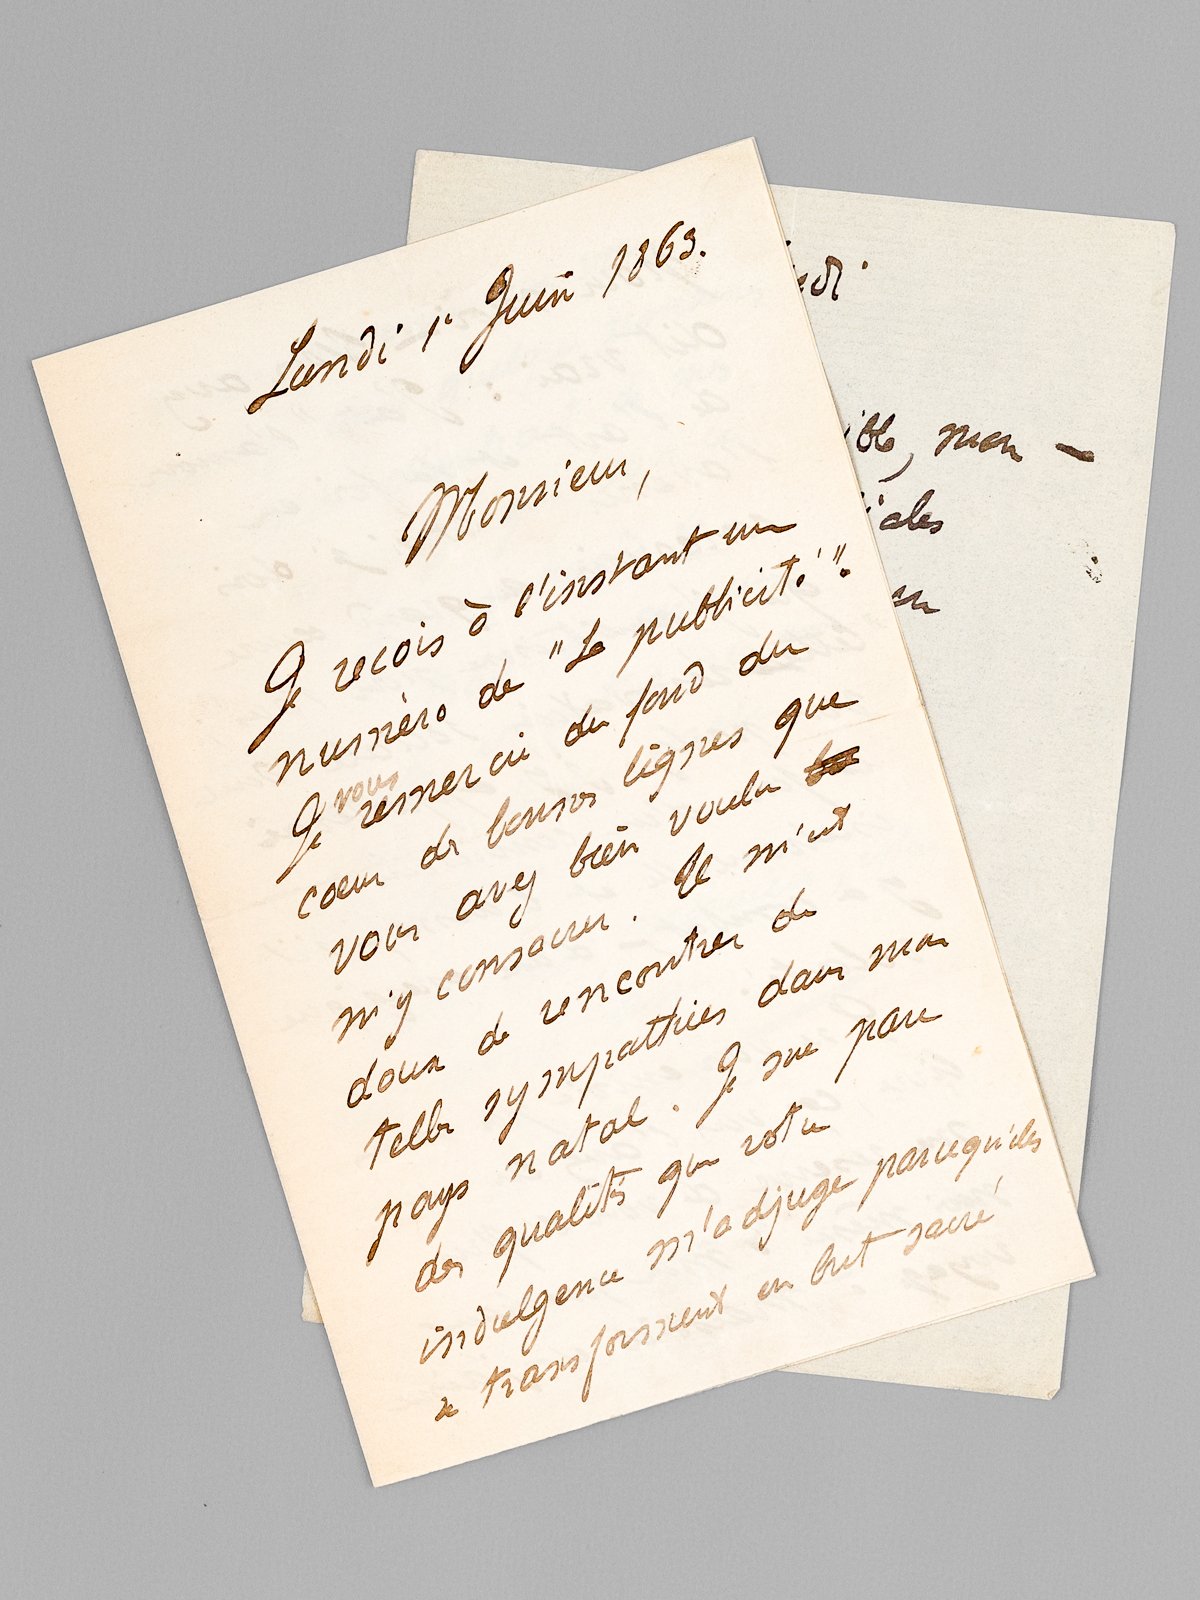 Lundi 1er Juin 1863.
Monsieur,
Je reçois à l'instant un
numéro de "La publicité".
Je vous remercie du fond du
cœur des bonnes lignes que
vous avez bien voulu
m'y consacrer. Il m'est
doux de rencontrer de
telles sympathies dans mon
pays natal. Je me pare
des qualités que votre
indulgence m'adjuge parcequ'elles
se transforment en but sacré
ndi
ible, mon -
iales
un